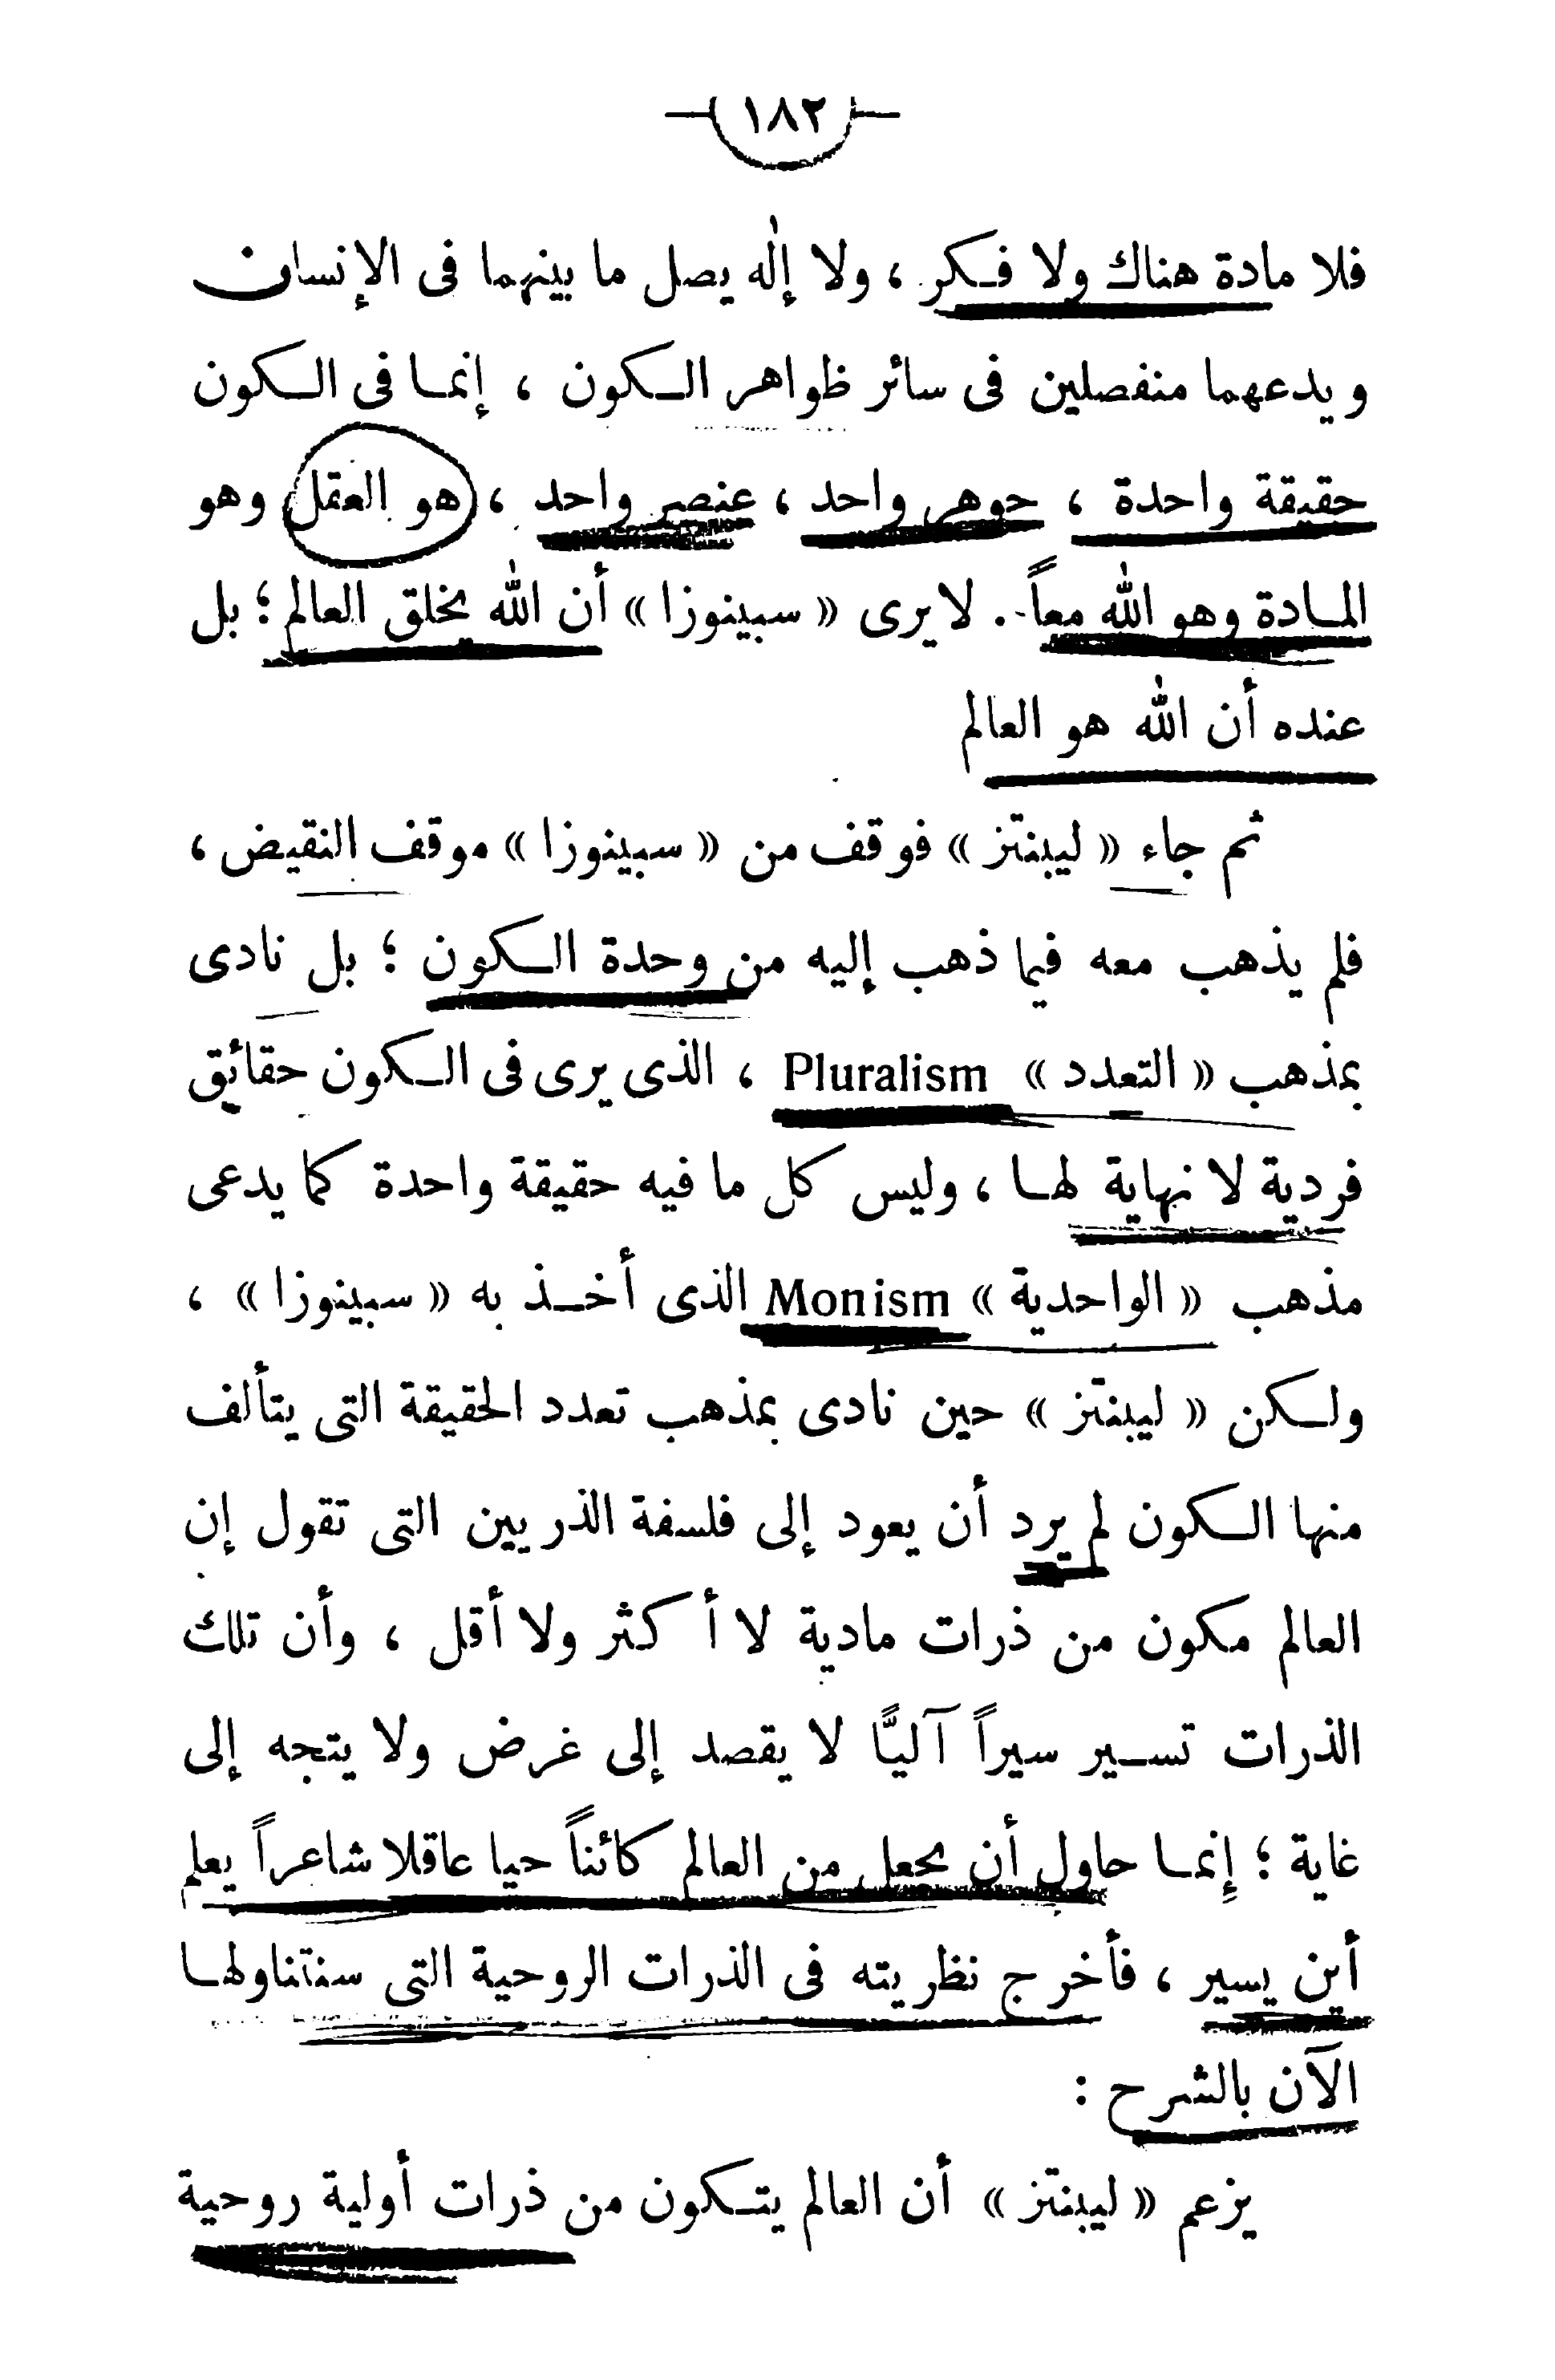 — ١٨٢ —
فلا مادة هناك ولا فكر ، ولا إلٰه يصل ما بينهما فى الإنسان
ويدعهما منفصلين فى سائر ظواهر الكون ، إنما فى الكون
حقيقة واحدة ، جوهر واحد ، عنصر واحد ، هو العقل وهو
المادة وهو الله معاً . لا يرى « سبينوزا » أن الله يخلق العالم ؛ بل
عنده أن الله هو العالم
ثم جاء « ليبنتز » فوقف من « سبينوزا » موقف النقيض ،
فلم يذهب معه فيما ذهب إليه من وحدة الكون ؛ بل نادى
بمذهب « التعدد » Pluralism ، الذى يرى فى الكون حقائق
فردية لا نهاية لها ، وليس كل ما فيه حقيقة واحدة كما يدعى
مذهب « الواحدية » Monism الذى أخذ به « سبينوزا » ،
ولكن « ليبنتز » حين نادى بمذهب تعدد الحقيقة التى يتألف
منها الكون لم يرد أن يعود إلى فلسفة الذريين التى تقول إن
العالم مكون من ذرات مادية لا أكثر ولا أقل ، وأن تلك
الذرات تسير سيراً آليًّا لا يقصد إلى غرض ولا يتجه إلى
غاية ؛ إنما حاول أن يجعل من العالم كائناً حيا عاقلا شاعراً يعلم
أين يسير ، فأخرج نظريته فى الذرات الروحية التى سنتناولها
الآن بالشرح :
يزعم « ليبنتز » أن العالم يتكون من ذرات أولية روحية